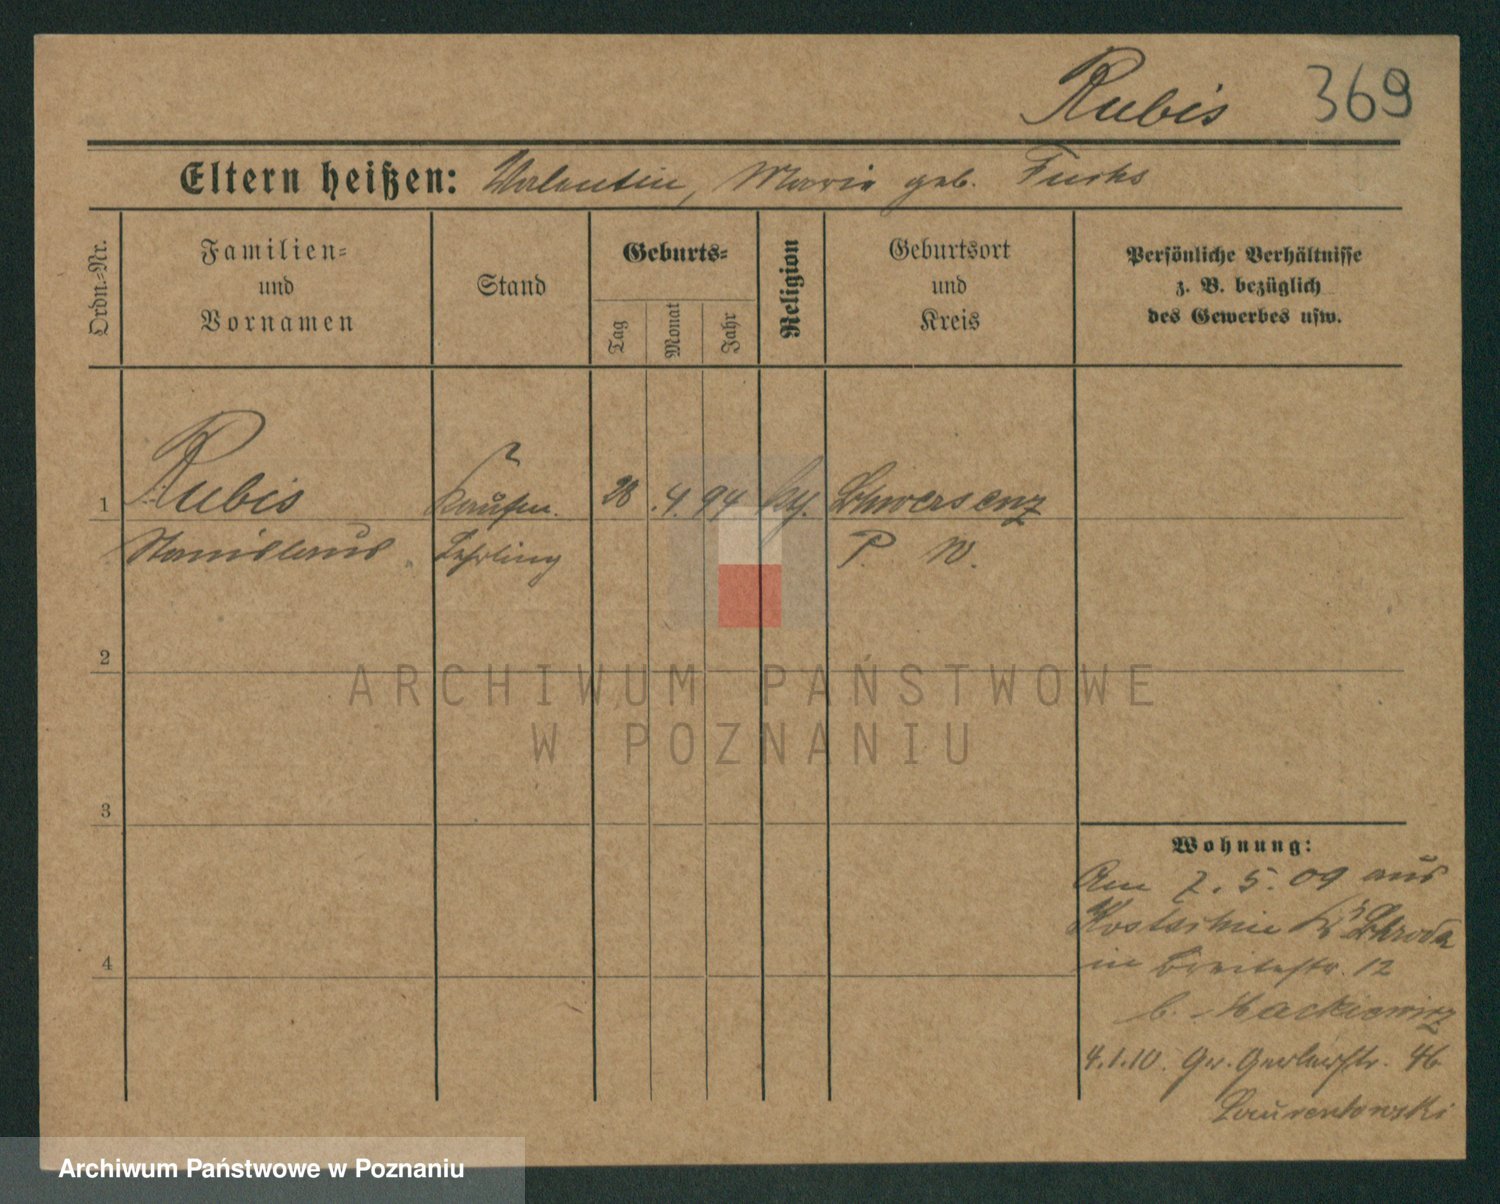 Rubis 369
Eltern heißen: Valentin, Maria geb. Fuchs
Ordn.-Nr.
Familien-
und
Vornamen
Stand
Geburts-
Tag
Monat
Jahr
Religion
Geburtsort
und
Kreis
Persönliche Verhältnisse
z. B. bezüglich
des Gewerbes usw.
1 Rubis Kaufm. 28 .4. 94 kth. Schwersenz
Stanislaus Lehrling P. W.
2
3
4
Wohnung:
Am 7. 5. 09 aus
Kostschin Kr. Schroda
in Breitestr. 12
b. Mackiewicz
4.1.10. Gr. Gerberstr. 46
Laurentowski
ARCHIWUM PAŃSTWOWE
W POZNANIU
Archiwum Państwowe w Poznaniu